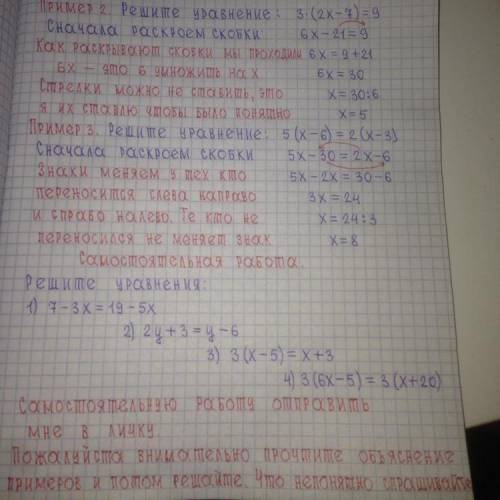 Пример 2. Решите уравнение: 3·(2x-7)=9
Сначала раскроем скобки 6x-21=9
Как раскрывают скобки мы проходили 6x=9+21
6x - это 6 умножить на x 6x=30
Стрелки можно не ставить, это x=30:6
я их ставлю чтобы было понятно x=5
Пример 3. Решите уравнение: 5(x-6)=2(x-3)
Сначала раскроем скобки 5x-30=2x-6
Знаки меняем у тех кто 5x-2x=30-6
переносится слева направо 3x=24
и справо налево. Те кто не x=24:3
переносился не меняет знак x=8
Самостоятельная работа.
Решите уравнения:
1) 7-3x=19-5x
2) 2y+3=y-6
3) 3(x-5)=x+3
4) 3(6x-5)=3(x+20)
Самостоятельную работу отправить
мне в личку.
Пожалуйста внимательно прочтите объяснение
примеров и потом решайте. Что непонятно спрашивайте